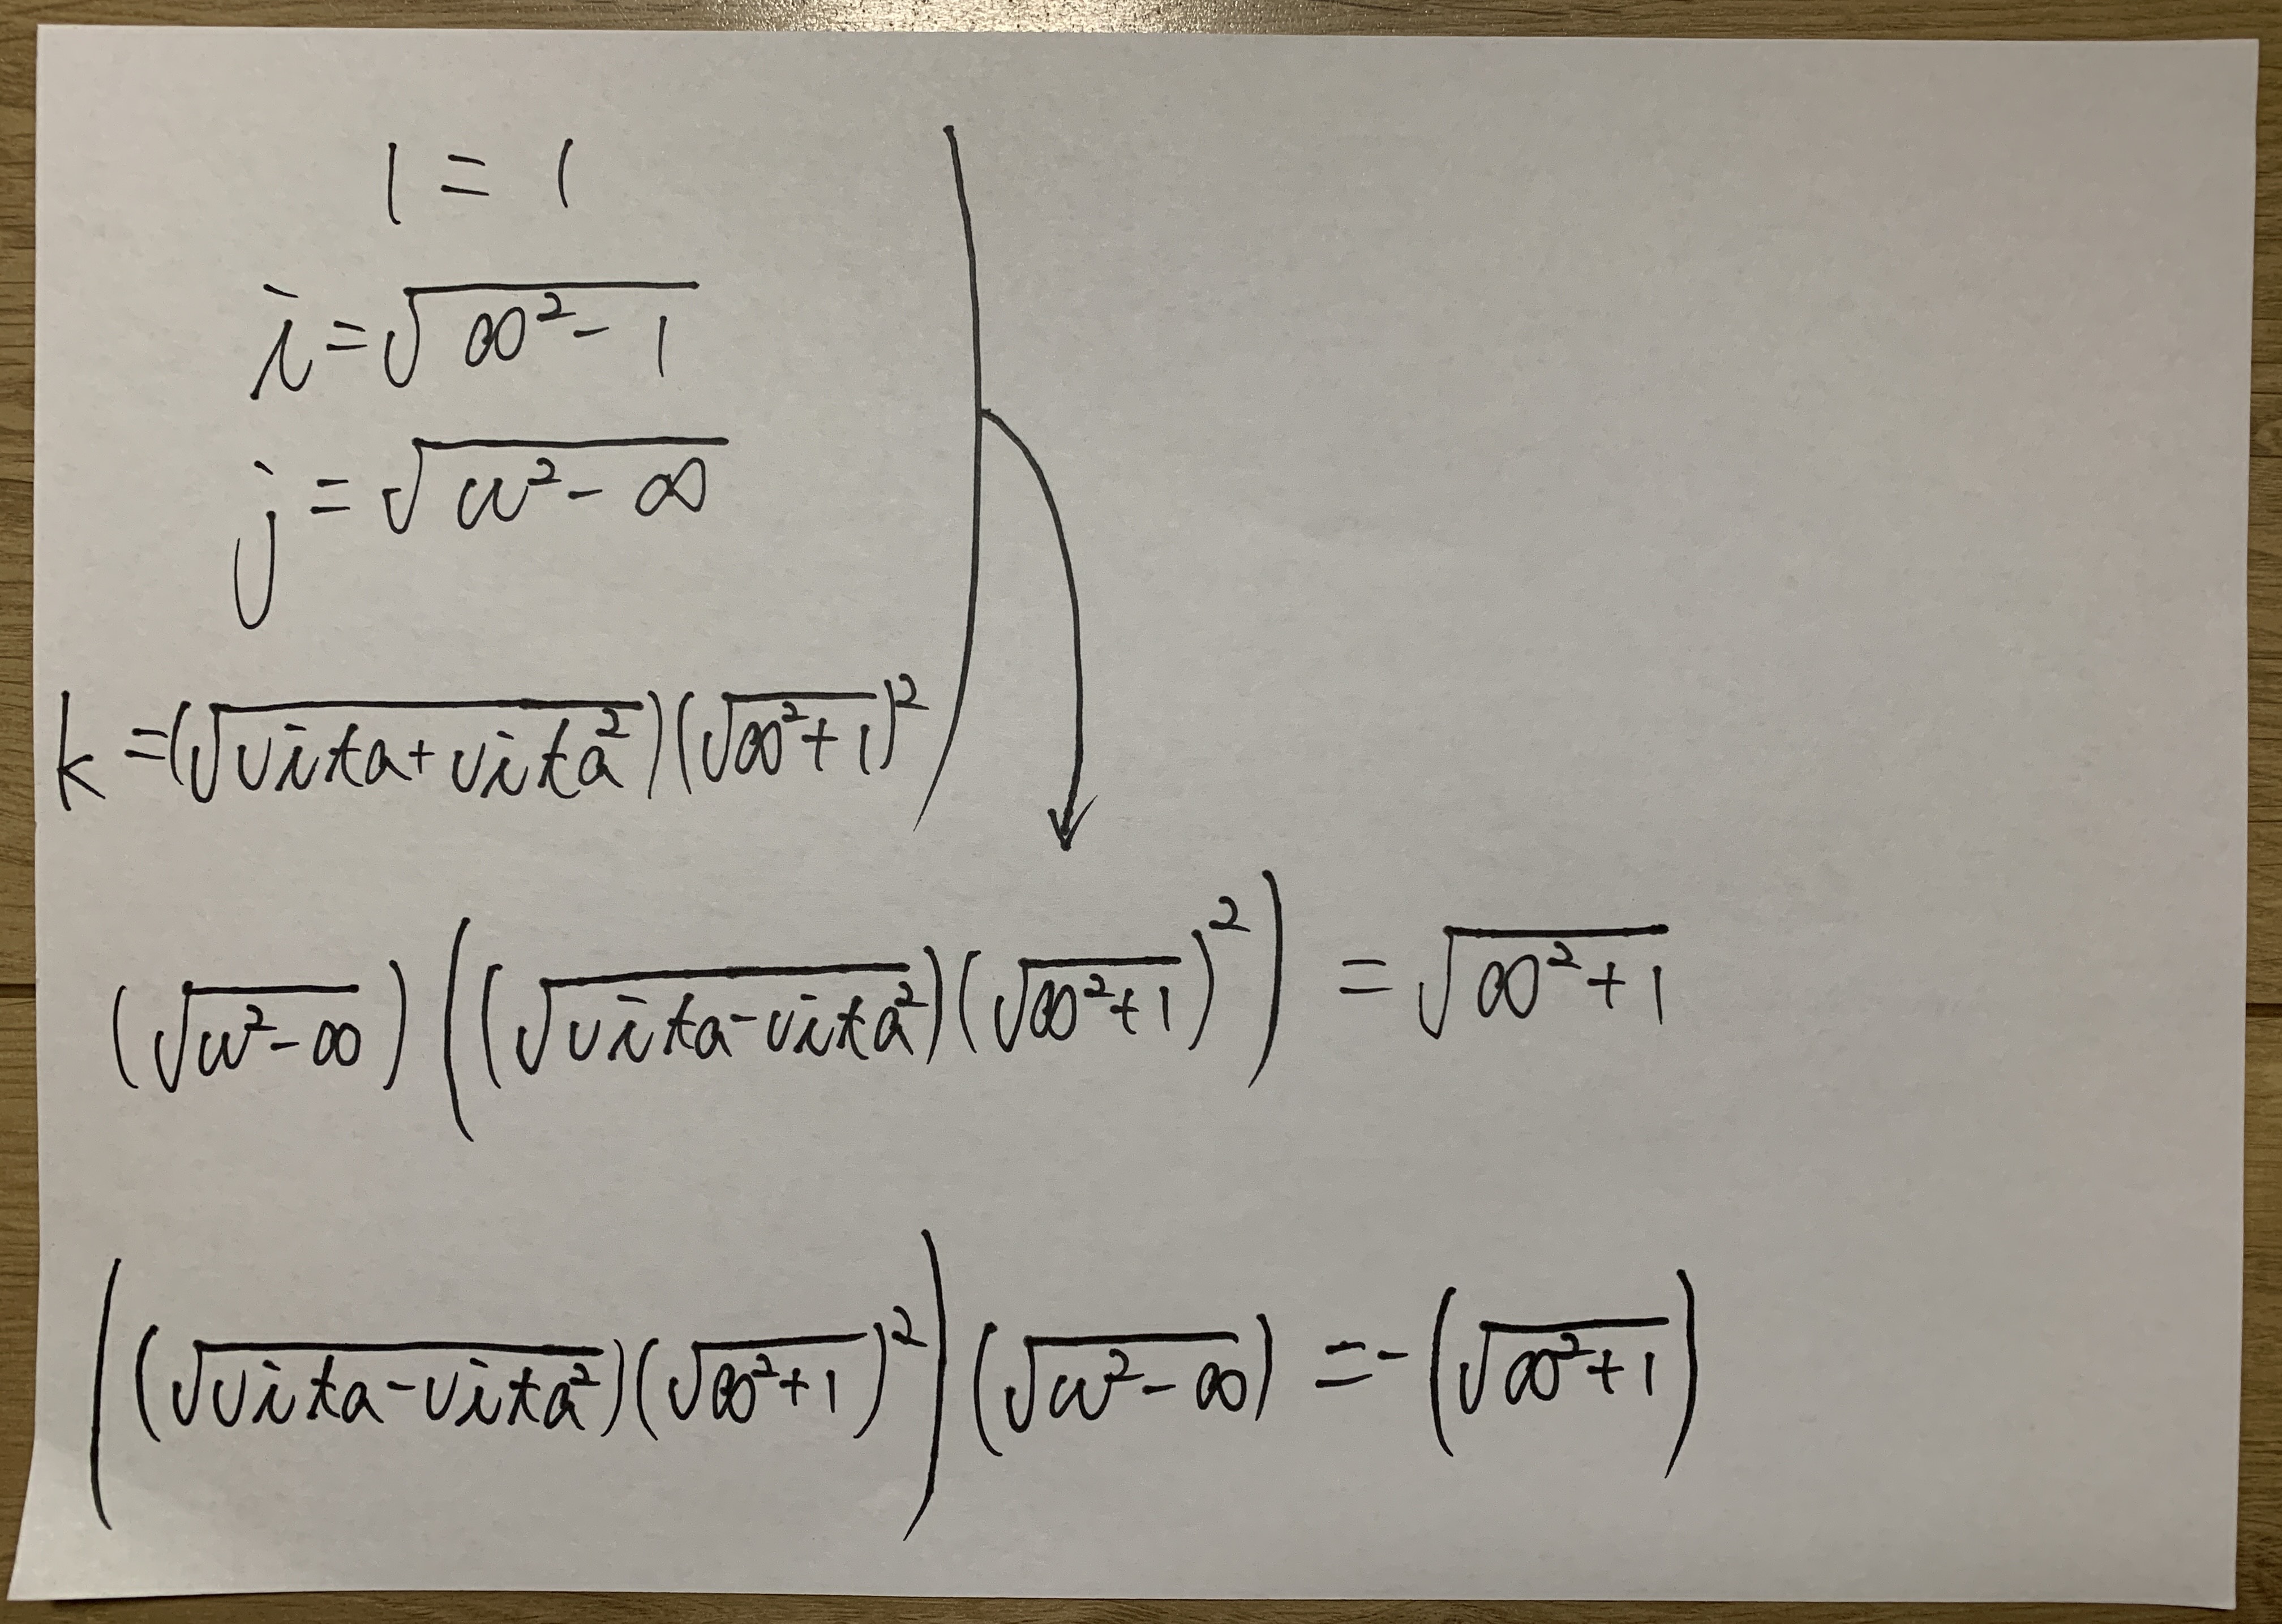 1 = 1
i = √(∞² - 1)
j = √(ω² - ∞)
k = (√(vita + vita²))(√(∞² + 1))²
(√(ω² - ∞))((√(vita - vita²))(√(∞² + 1))²) = √(∞² + 1)
((√(vita - vita²))(√(∞² + 1))²)(√(ω² - ∞)) = -(√(∞² + 1))